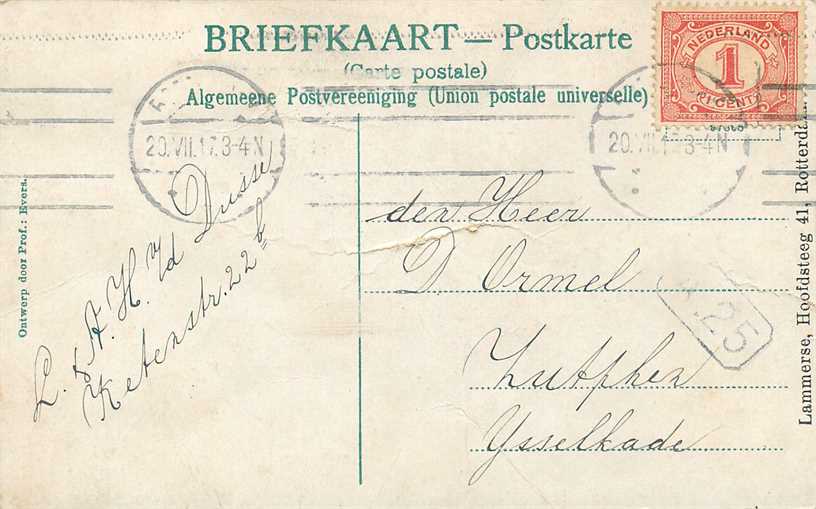 BRIEFKAART — Postkarte
(Carte postale)
Algemeene Postvereeniging (Union postale universelle)
NEDERLAND
1
CENT
20.VII.17.3-4N
20.VII.17.3-4N
Ontwerp door Prof.: Evers.
L. & A. H. v/d Dussen
Ketenstr. 22b
den Heer
D. Ormel
Zutphen
Ysselkade
25
Lammerse, Hoofdsteeg 41, Rotterdam.